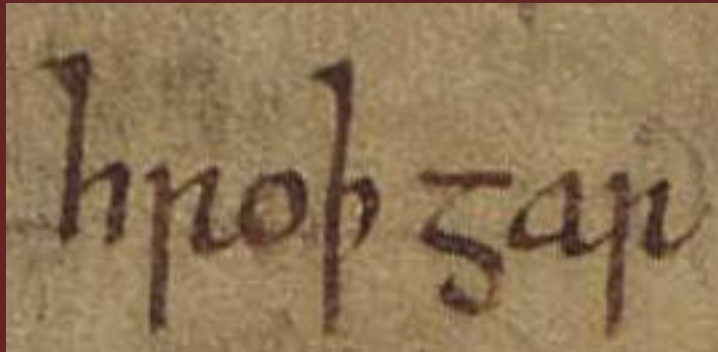 hroþgar